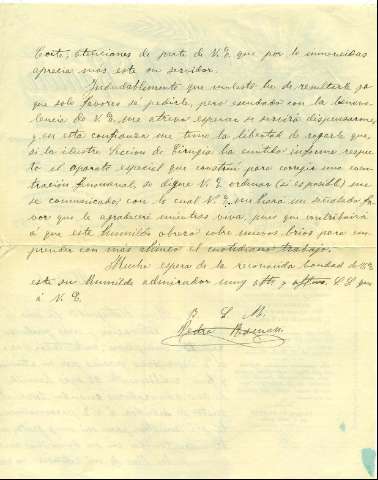 éxito, atenciones de parte de V. E. que por lo inmerecidas
aprecia mas este su servidor.
Indudablemente que molesto he de resultarle ya
que solo favores sé pedirle, pero escudado con la benevo-
lencia de V. E. me atrevo esperar se servirá dispensarme,
y en esta confianza me tomo la libertad de rogarle que,
si la ilustre Seccion de Cirugia ha emitido informe respec-
to al aparato especial que construí para corregir una con-
tracción funcional, se digne V. E. ordenar (si es posible) me
sea comunicado; con lo cual V. E. me hará un señalado fa-
vor que le agradeceré mientras viva, pues que contribuirá
á que este humilde obrero cobre nuevos brios para em-
prender con más ahinco el cuotidiano trabajo.
Mucho espera de la reconocida bondad de V. E.
este su humilde admirador muy atto y affmo S. S. que
á V. E.
B. L. M.
Pedro